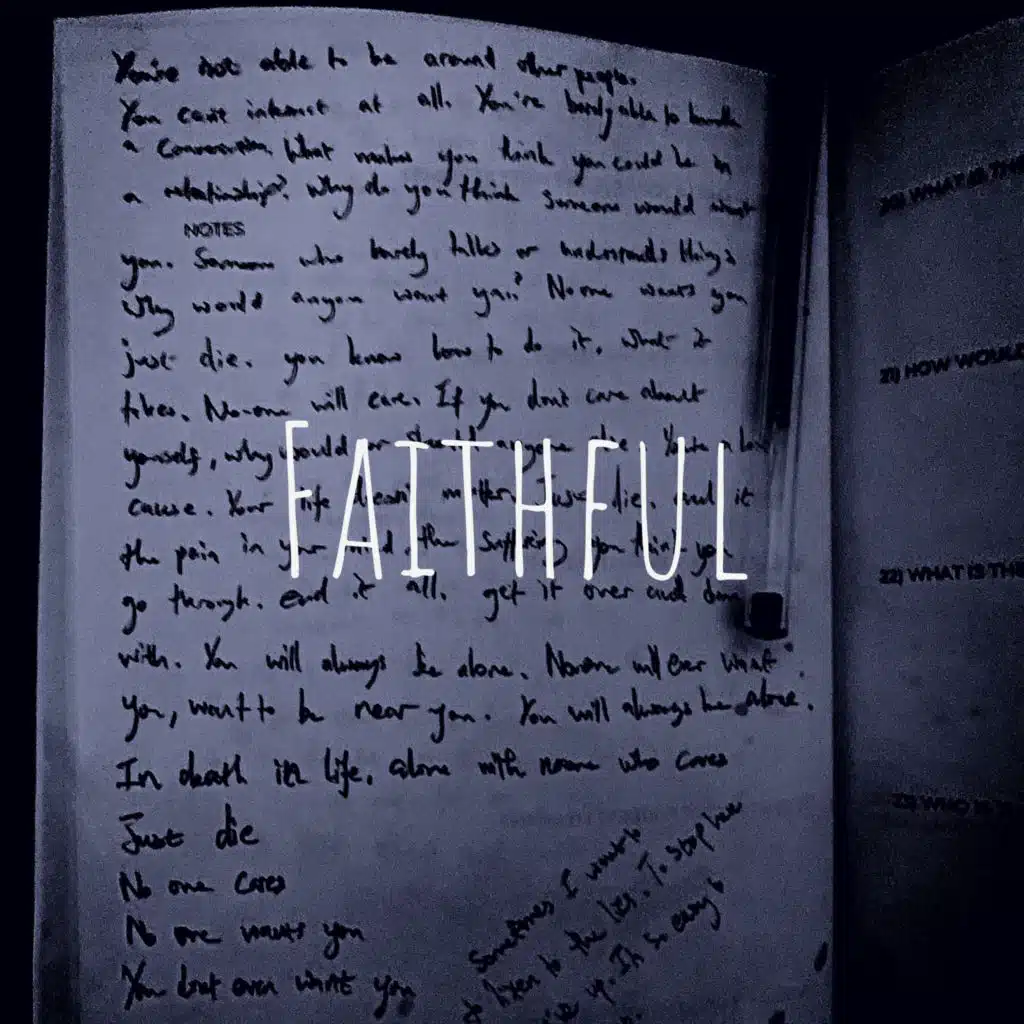 You're not able to be around other people.
You can't interact at all. You're barely able to handle
a conversation. What makes you think you could be in
a relationship? Why do you think someone would want
NOTES
you. Someone who barely talks or understands things
Why would anyone want you? No one wants you
just die. you know how to do it, what it
takes. No-one will care. If you don't care about
yourself, why would or should anyone else
cause. Your life doesn't matter. Just die. end it
FAITHFUL
the pain in your the suffering you think you
go through. end it all. get it over and done
with. You will always be alone. No one will ever want
you, want to be near you. You will always be alone.
In death in life. alone with no one who cares
Just die
No one cares
No one wants you
You don't even want you
Sometimes I want to
listen to the lies. To stop
up. It's so easy to
20) WHAT IS THE
21) HOW WOULD
22) WHAT IS THE
23) WHO IS